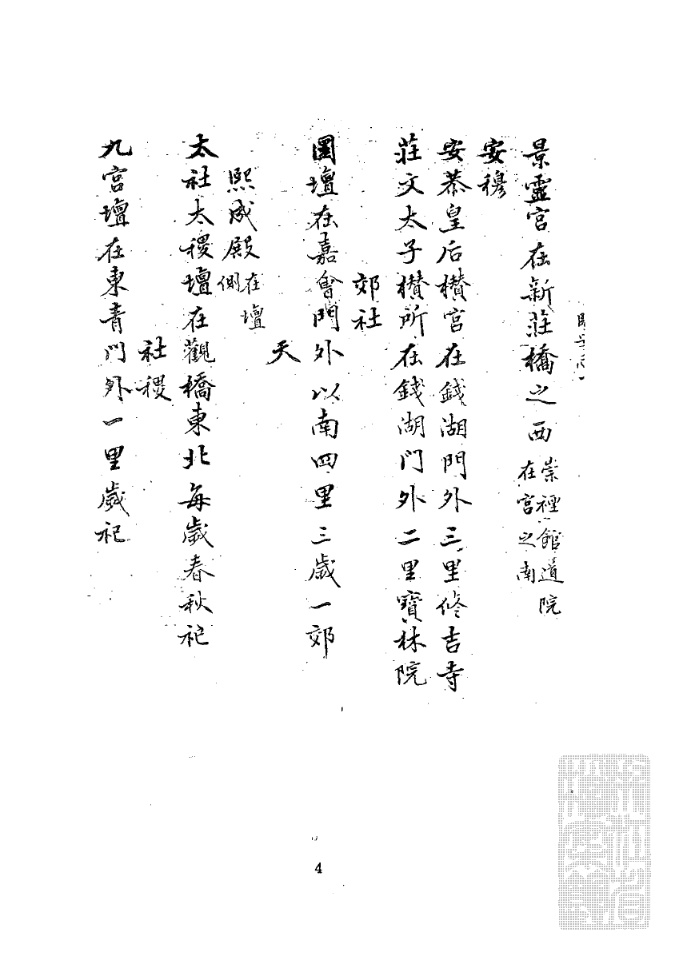 景靈宮在新莊橋之西崇禋館道院在宮之南
安穆
安恭皇后欑宮在錢湖門外三里修吉寺
莊文太子欑所在錢湖門外二里寶林院
郊社
圜壇在嘉會門外以南四里三歲一郊
天
熙成殿在壇側
太社太稷壇在觀橋東北每歲春秋祀
社稷
九宮壇在東青門外一里歲祀
4